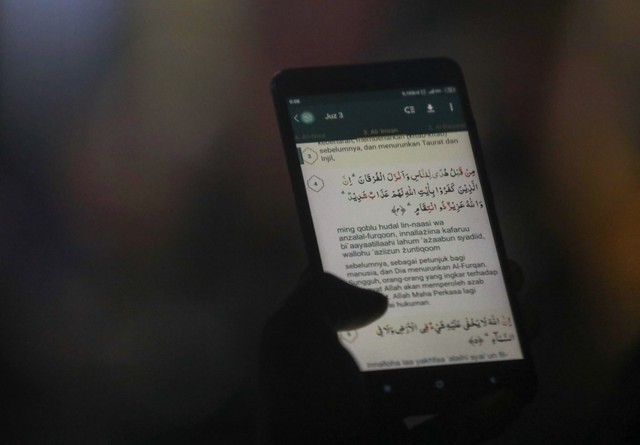 Juz 3
3. Ali 'Imran
sebelumnya, dan menurunkan Taurat dan
Injil,
3
4
مِنْ قَبْلُ هُدًى لِّلنَّاسِ وَاَنْزَلَ الْفُرْقَانَ ۗ اِنَّ
الَّذِيْنَ كَفَرُوْا بِاٰيٰتِ اللّٰهِ لَهُمْ عَذَابٌ شَدِيْدٌ ۗ
وَاللّٰهُ عَزِيْزٌ ذُو انْتِقَامٍ ۗ ﴿٤﴾
ming qoblu hudal lin-naasi wa
anzalal-furqoon, innallażiina kafaruu
bi`aayaatillaahi lahum 'ażaabun syadiid,
wallohu 'aziizun żuntiqoom
sebelumnya, sebagai petunjuk bagi
manusia, dan Dia menurunkan Al-Furqan.
Sungguh, orang-orang yang ingkar terhadap
Allah akan memperoleh azab
Allah Maha Perkasa lagi
hukuman
5
اِنَّ اللّٰهَ لَا يَخْفٰى عَلَيْهِ شَيْءٌ فِى الْاَرْضِ وَلَا فِى
السَّمَاۤءِ ۗ ﴿٥﴾
innalloha laa yakhfaa 'alaihi syai`un fil-